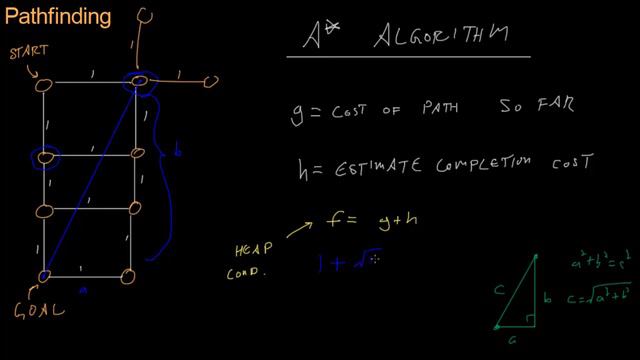 Pathfinding
START
1
1
1
1
1
1
1
1
1
1
b
1
a
GOAL
A* ALGORITHM
g = COST OF PATH SO FAR
h = ESTIMATE COMPLETION COST
f = g+h
HEAP
COND.
1 + √
c
b
a
a²+b²=c²
c=√a²+b²